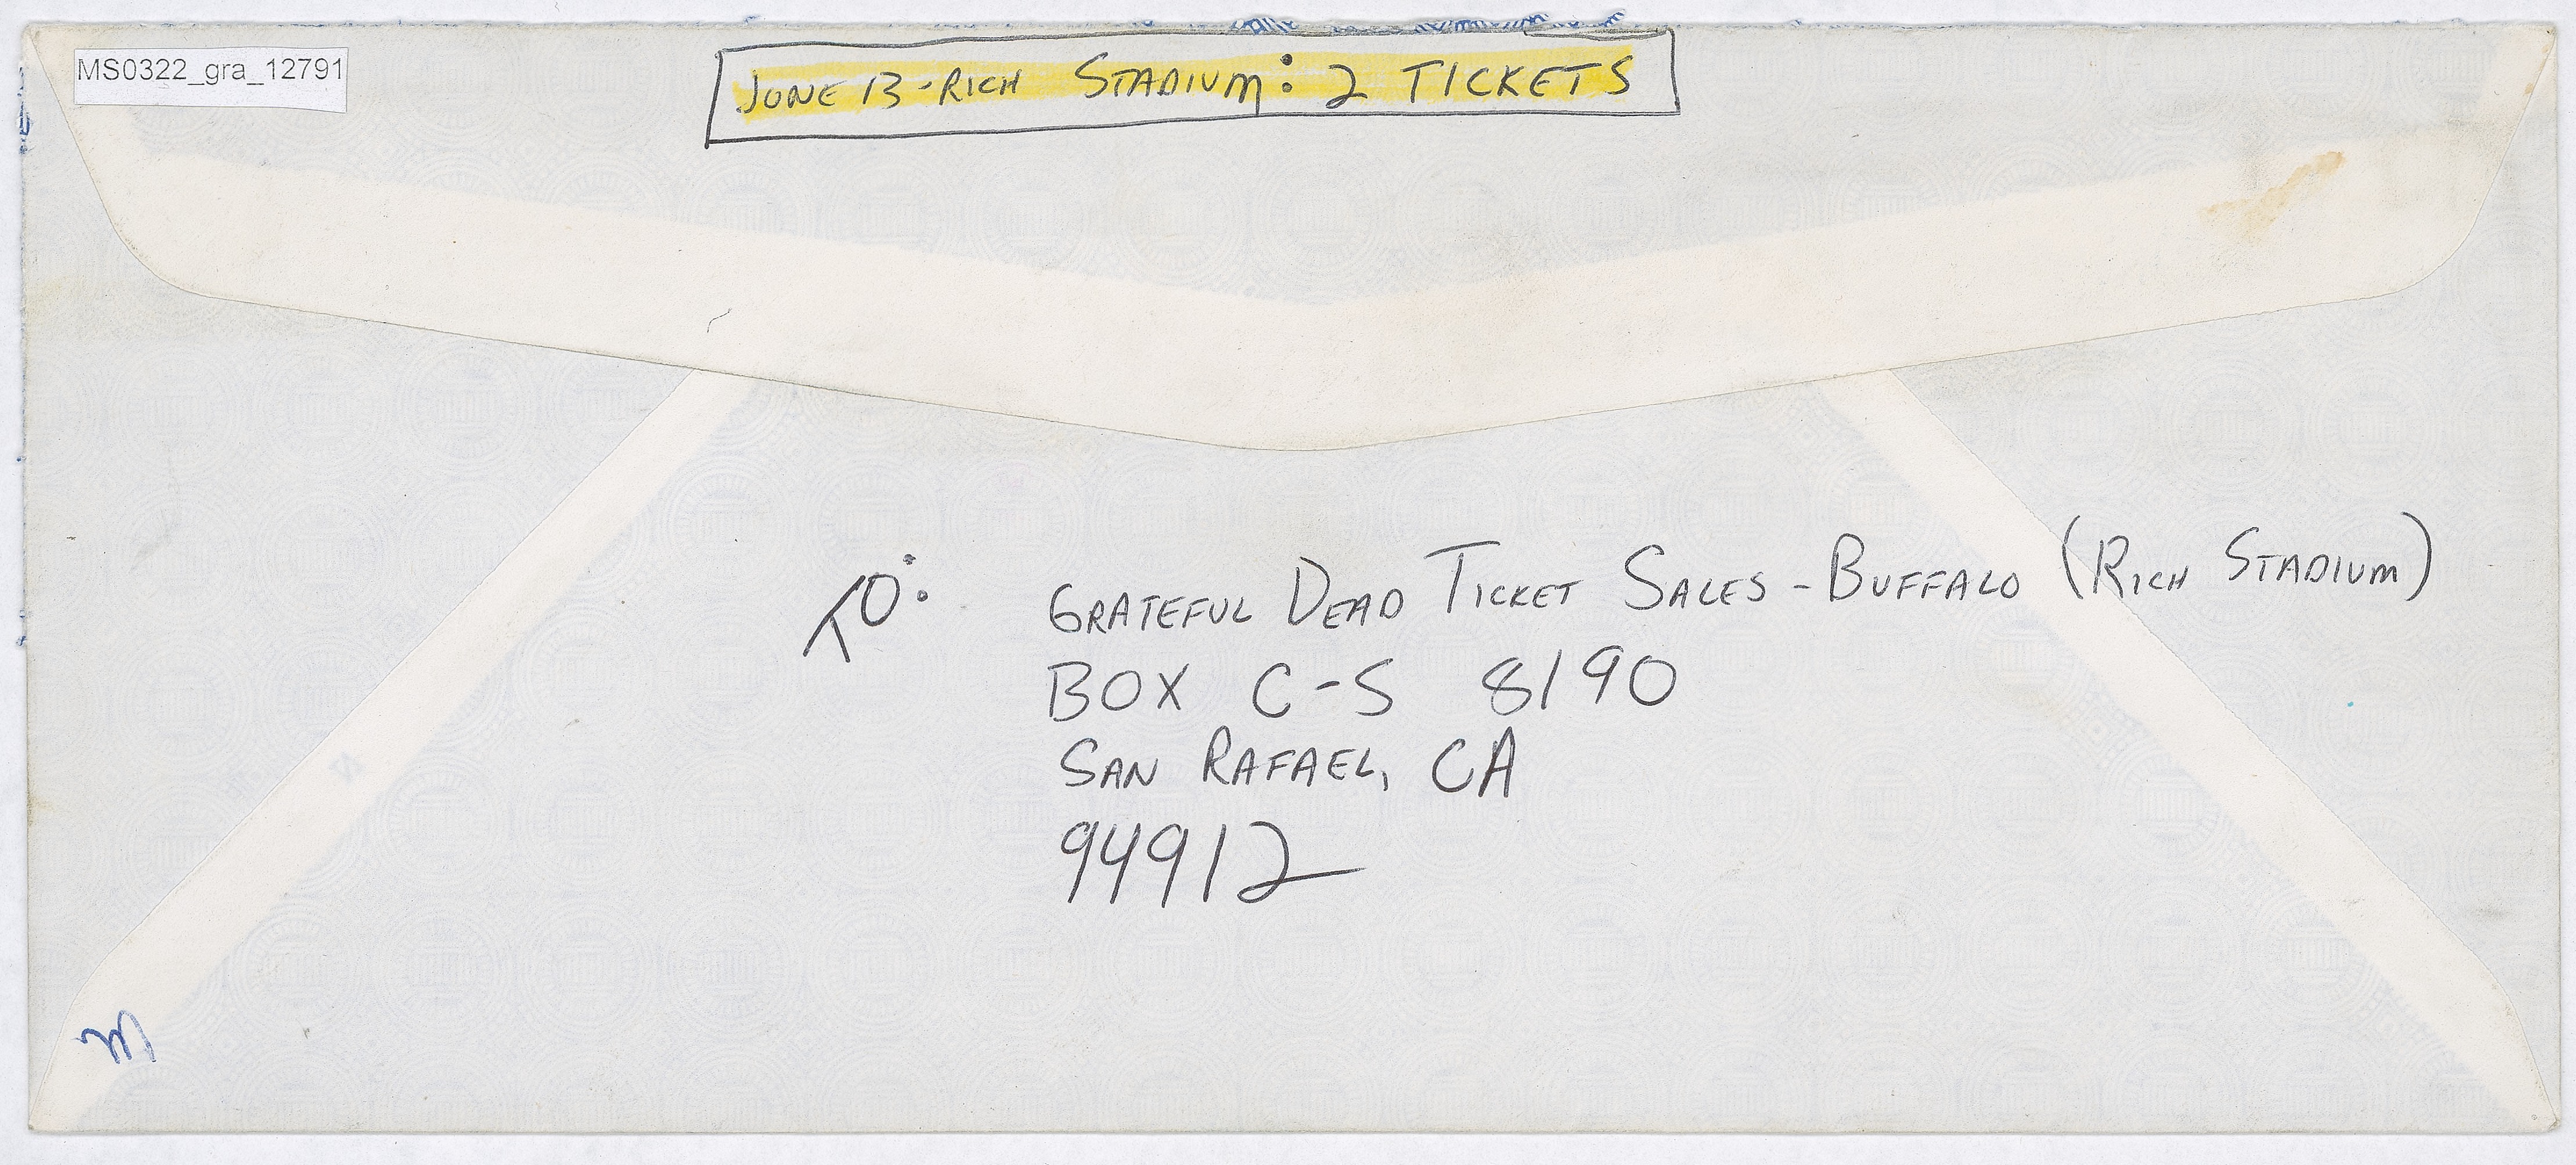 MS0322_gra_12791
JUNE 13-RICH STADIUM: 2 TICKETS
TO:
GRATEFUL DEAD TICKET SALES - BUFFALO (RICH STADIUM)
BOX C-S 8190
SAN RAFAEL, CA
94912
M